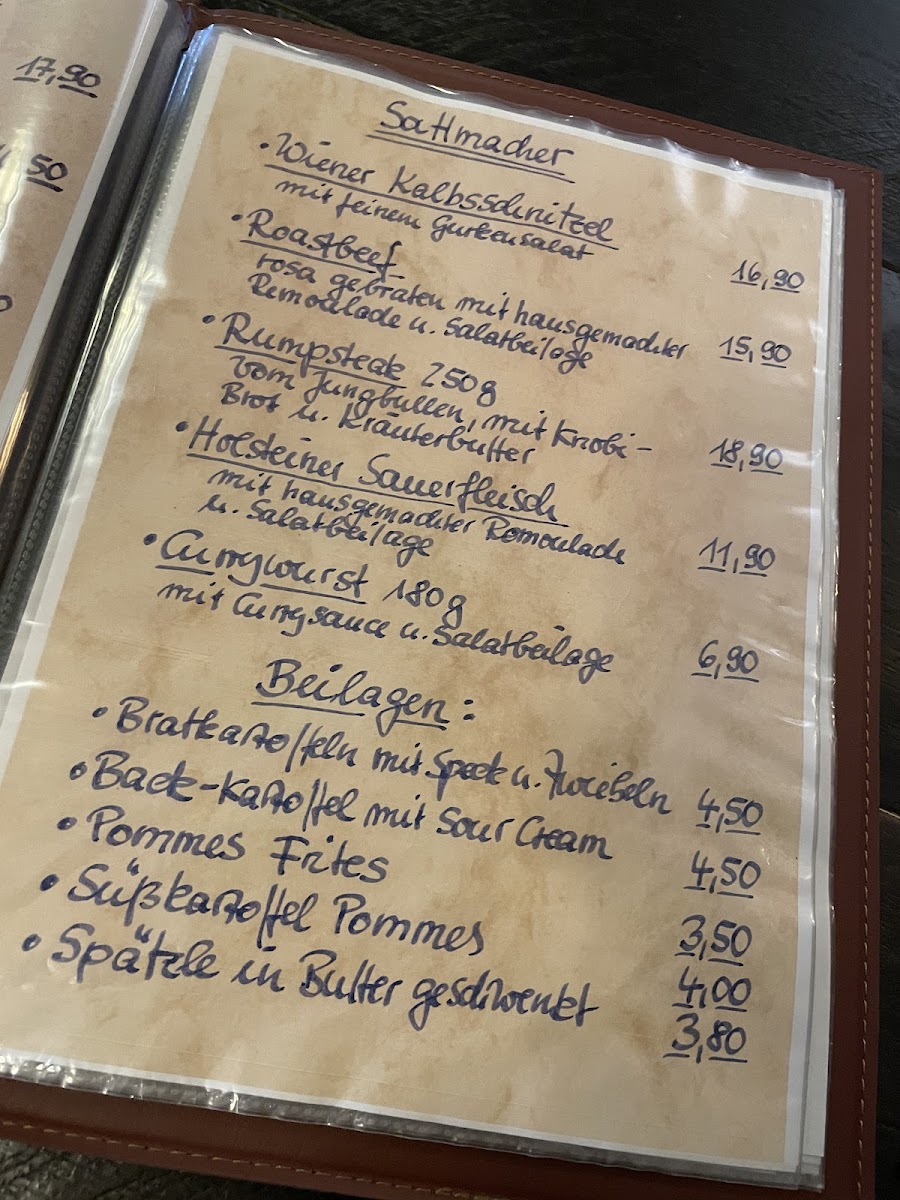 17,90
50
Sattmacher
• Wiener Kalbsschnitzel
mit feinem Gurkensalat 16,90
• Roastbeef
rosa gebraten mit hausgemachter
Remoulade u. Salatbeilage 15,90
• Rumpsteak 250g
vom Jungbullen, mit Knobi-
Brot u. Kräuterbutter 18,90
• Holsteiner Sauerfleisch
mit hausgemachter Remoulade
u. Salatbeilage 11,90
• Currywurst 180g
mit Currysauce u. Salatbeilage 6,90
Beilagen:
• Bratkartoffeln mit Speck u. Zwiebeln 4,50
• Back-Kartoffel mit Sour Cream 4,50
• Pommes Frites 3,50
• Süßkartoffel Pommes 4,00
• Spätzle in Butter geschwenkt 3,80